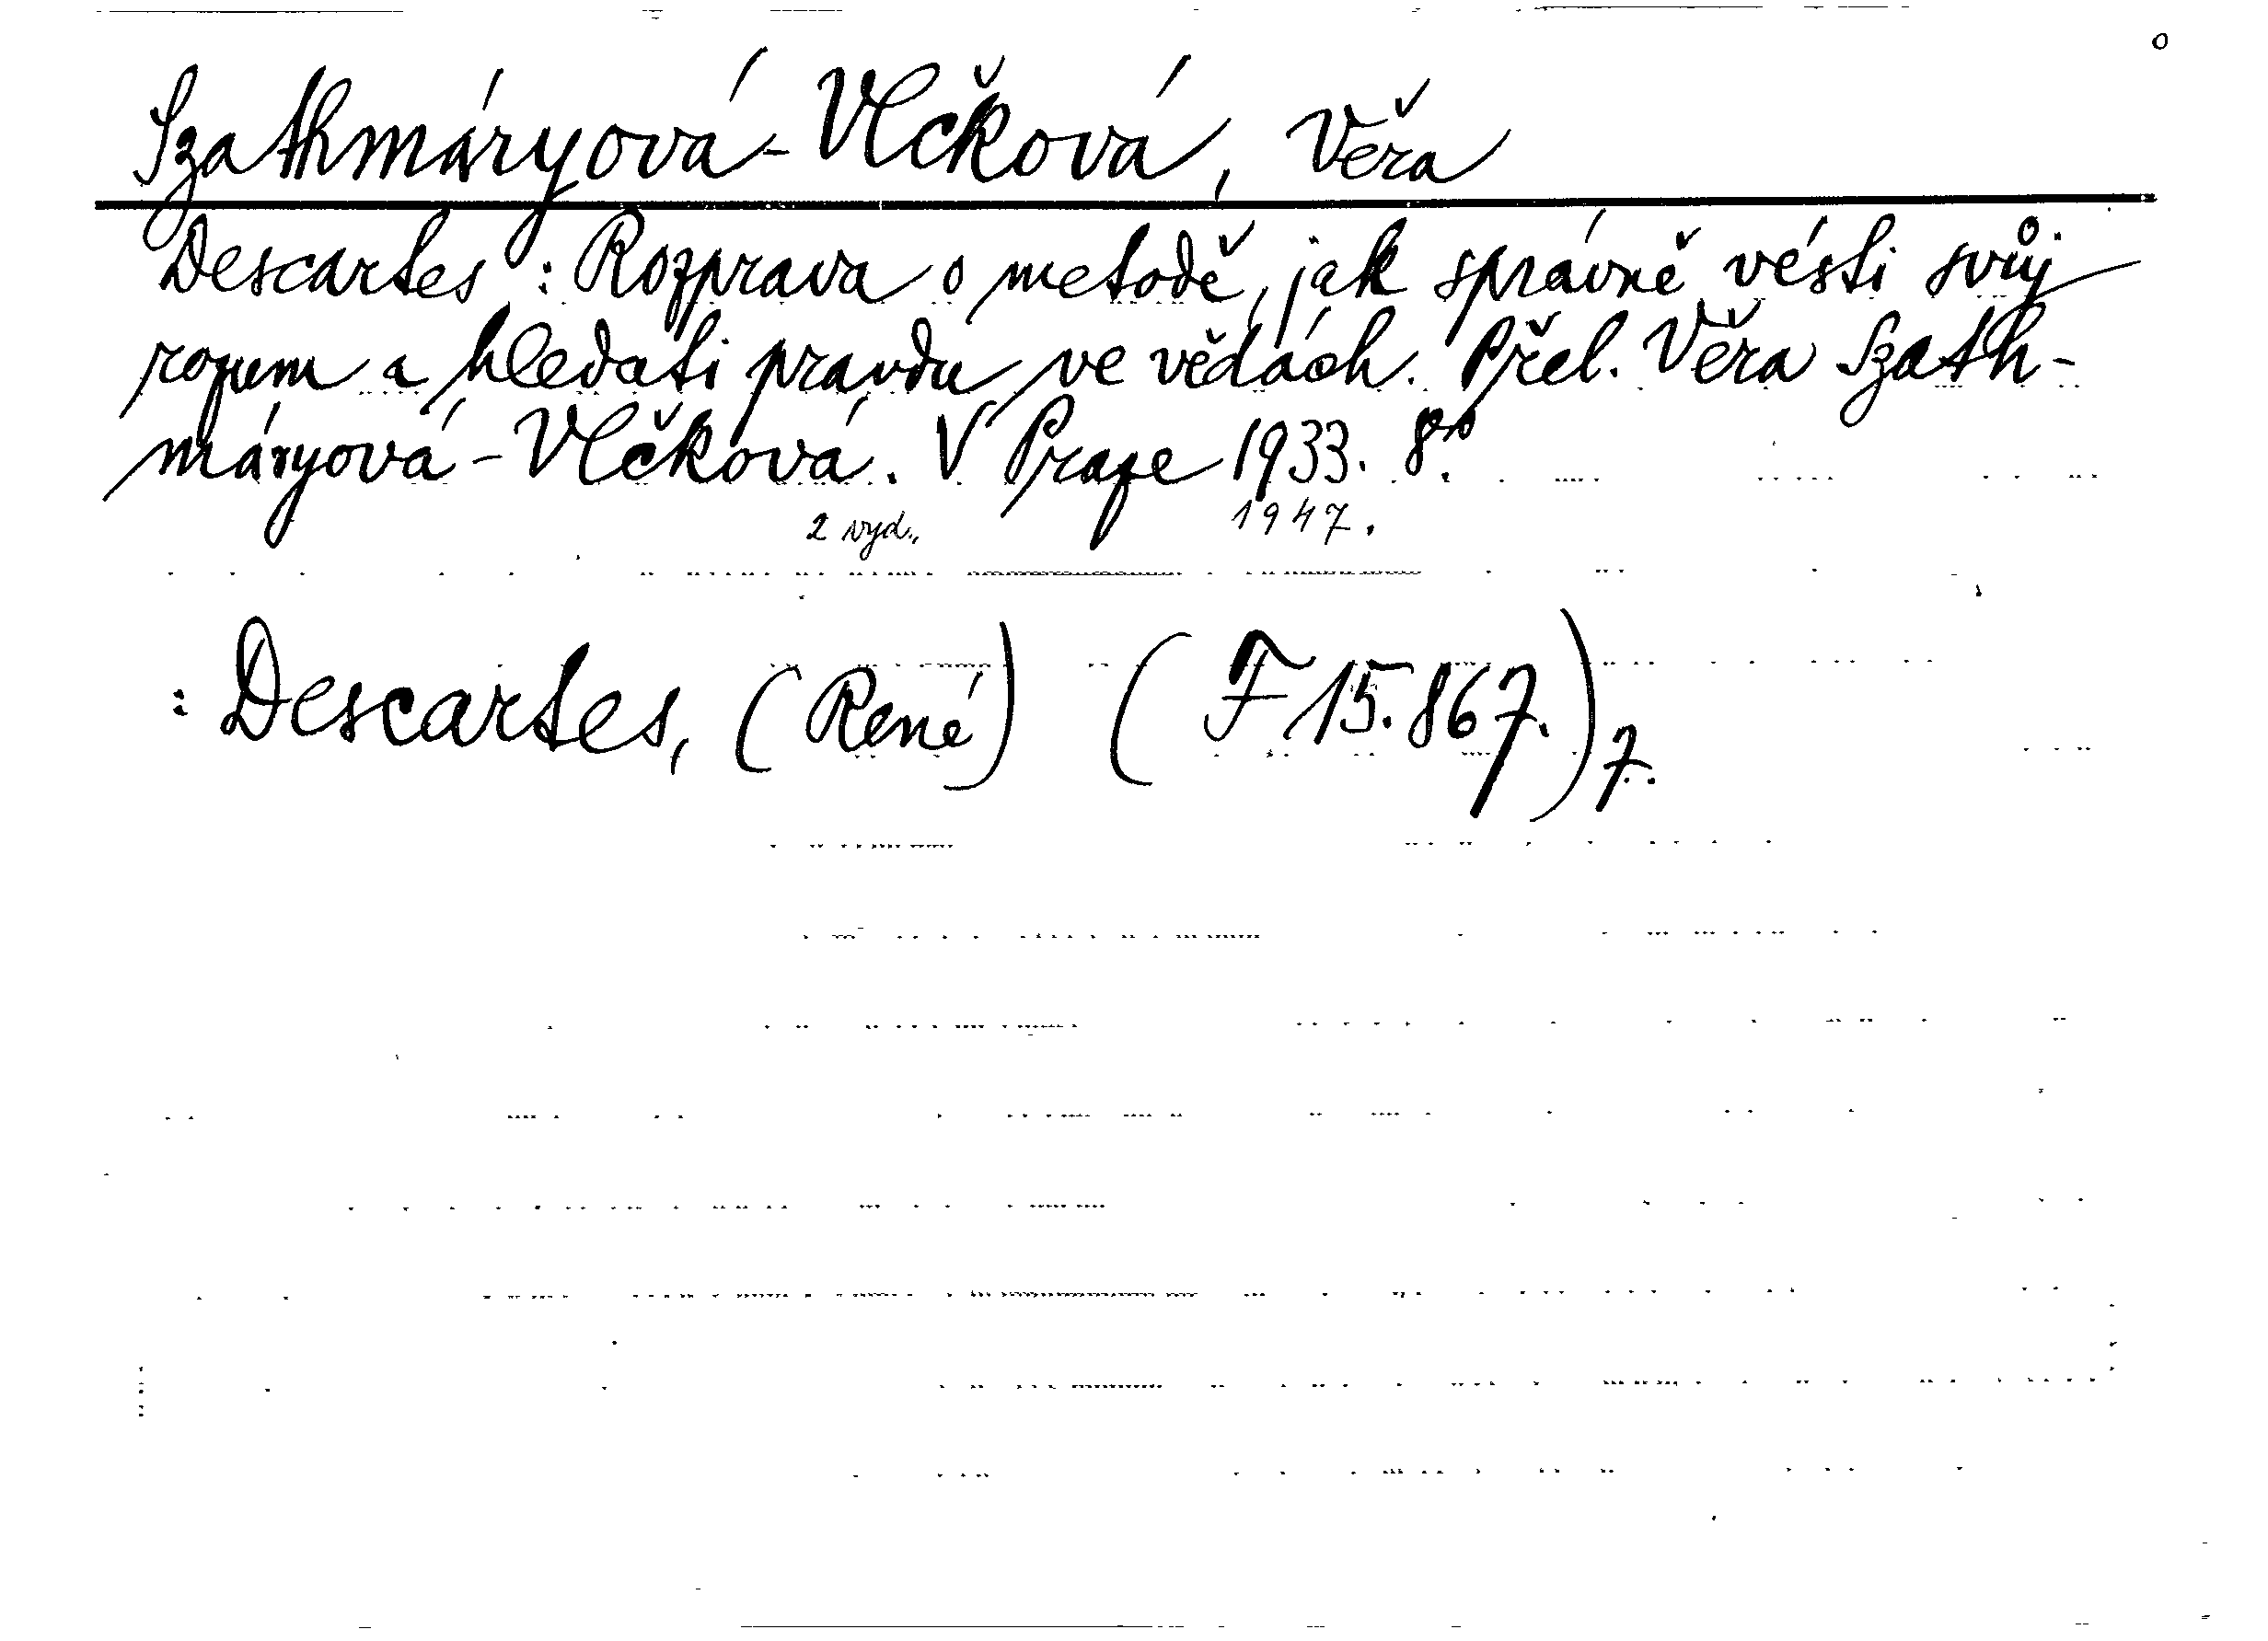 Szathmáryová-Vlčková, Věra
Descartes: Rozprava o metodě, jak správně vésti svůj
rozum a hledati pravdu ve vědách. Přel. Věra Szath-
máryová-Vlčková. V Praze 1933. 8°.
2 vyd., 1947.
: Descartes, (René) (F 15.867.) 7.